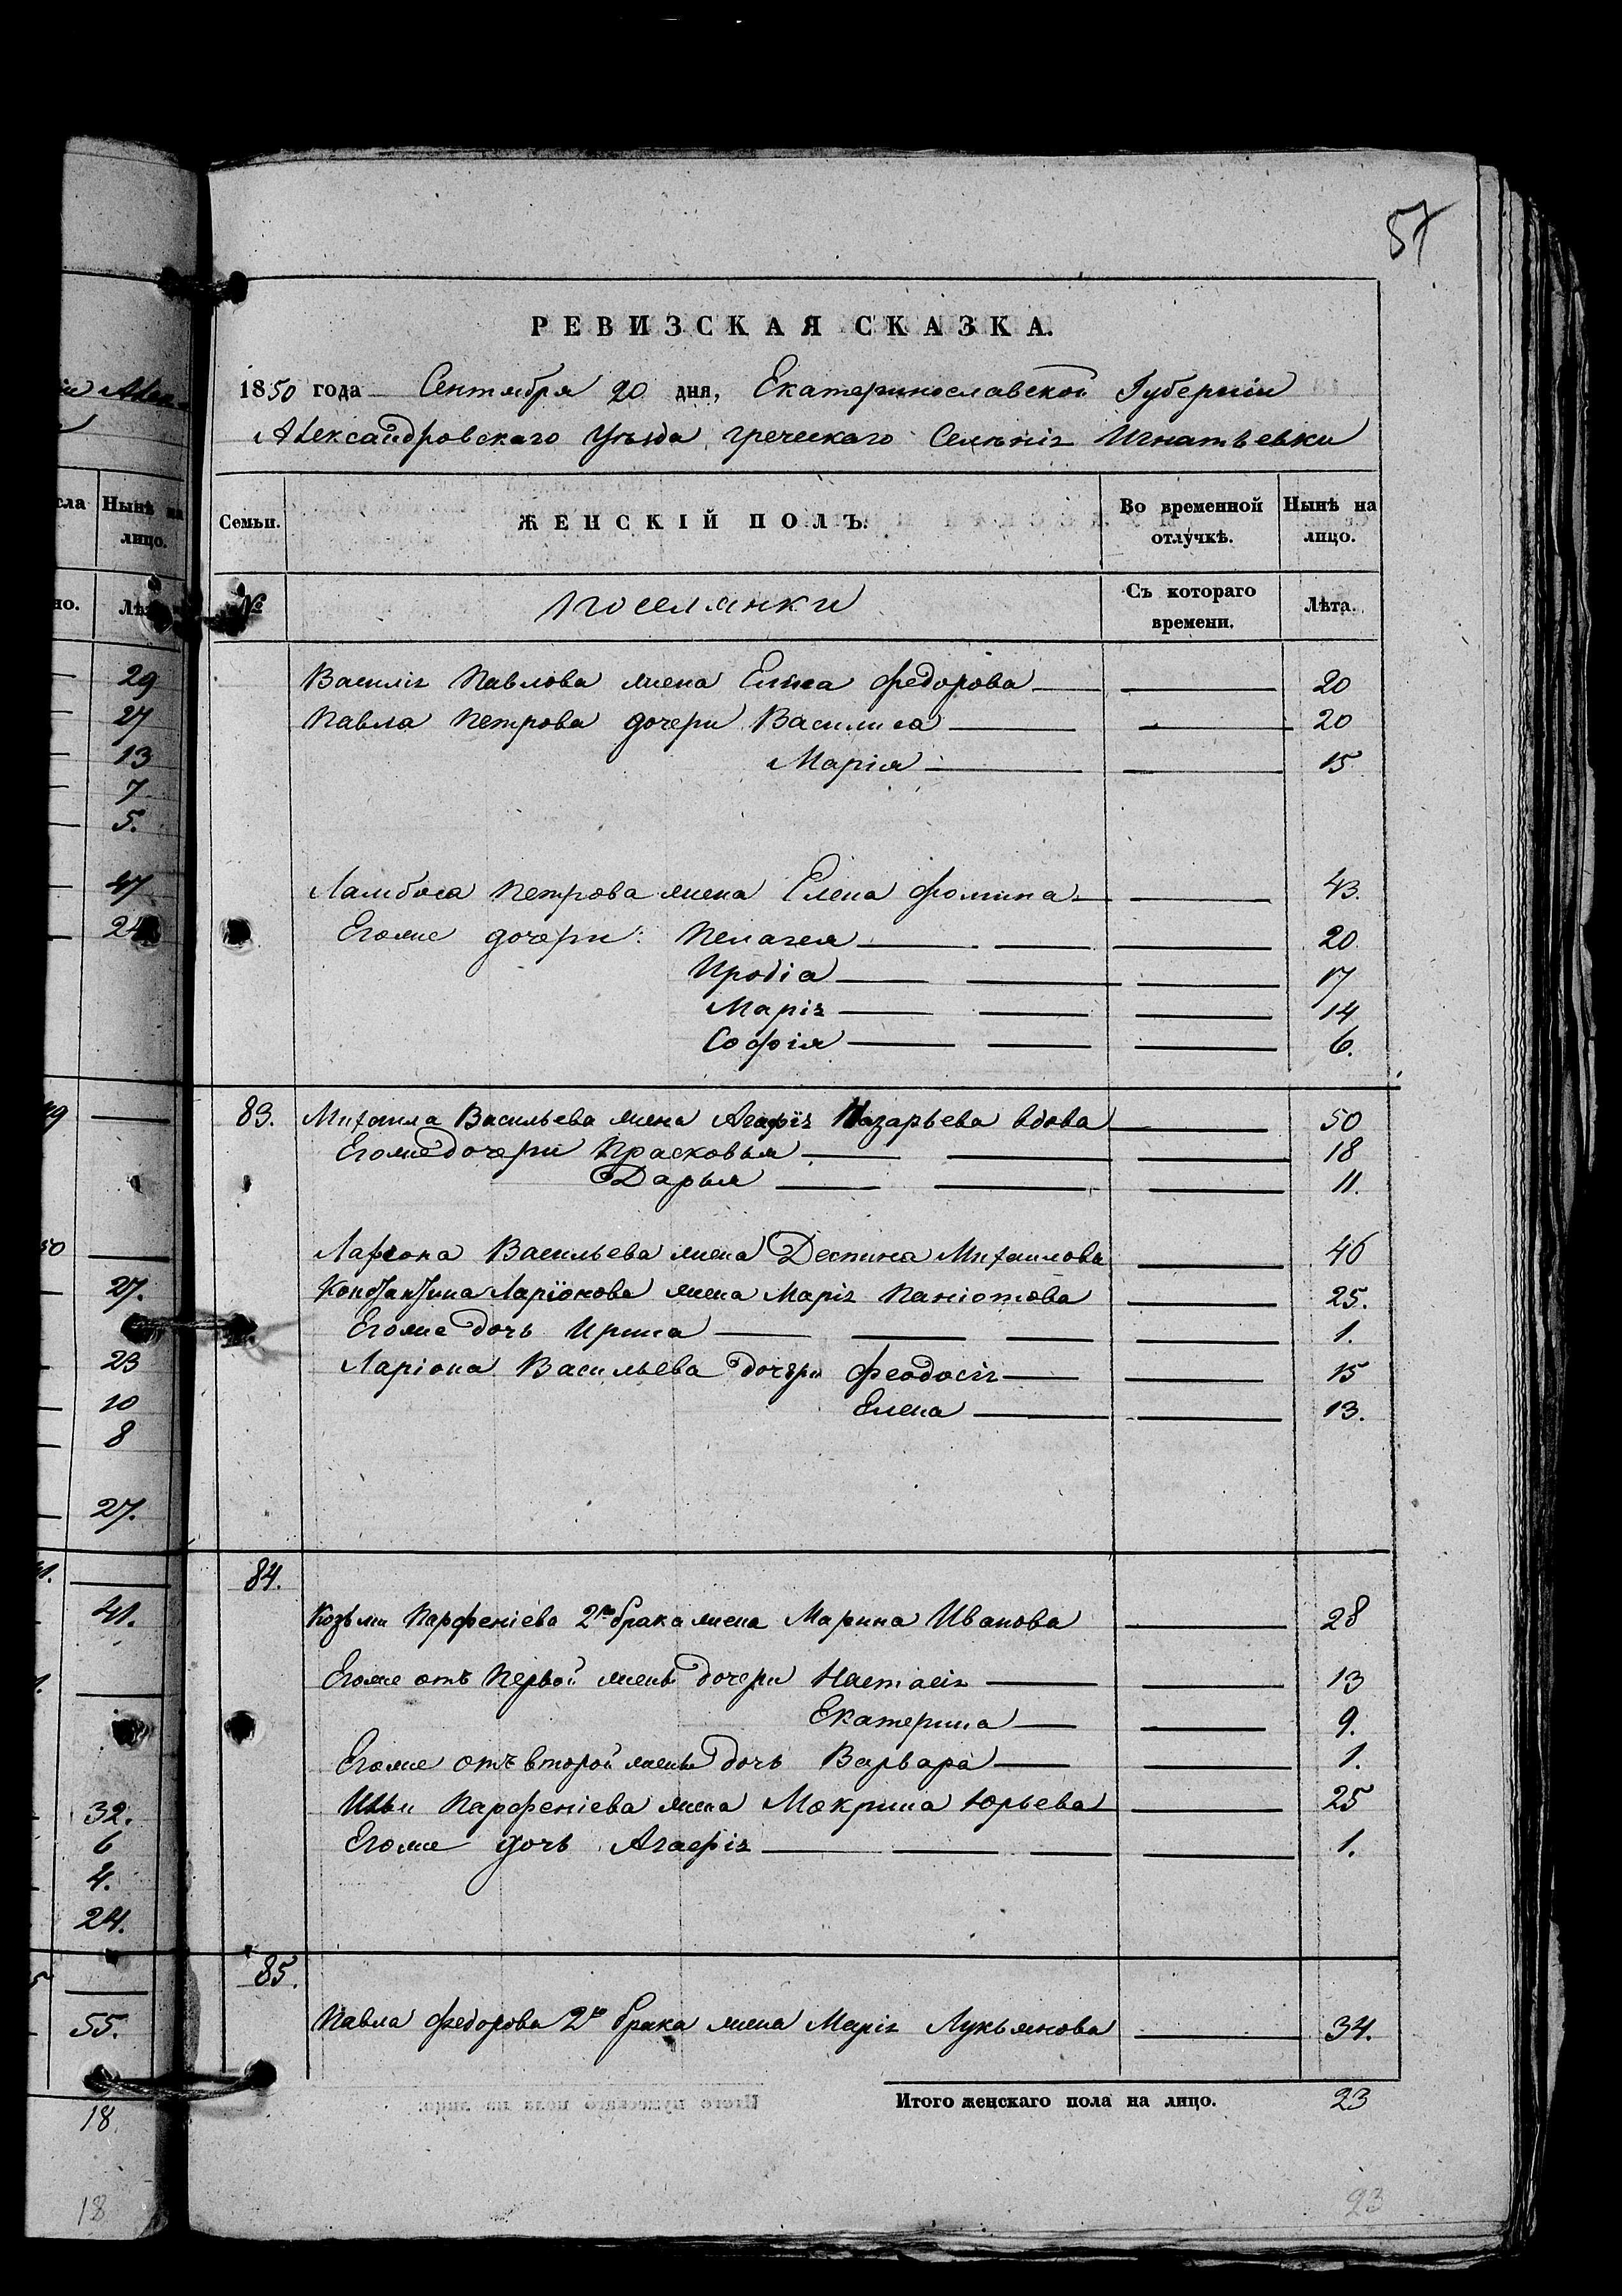 57
РЕВИЗСКАЯ СКАЗКА.
1850 года Сентября 20 дня, Екатеринославской Губерніи
Александровскаго Уѣзда, греческаго Селенія Игнатьевки
Семьи. ЖЕНСКІЙ ПОЛЪ. Во временной отлучкѣ. Нынѣ на лицо.
№ Поселянки Съ котораго времени. Лѣта.
Василія Павлова жена Елена Федорова 20
Павла Петрова дочери Василиса 20
Марія 15
Ламбоса Петрова жена Елена Фомина 43.
Егоже дочери: Пелагея 20
Иродіа 17
Марія 14
Софія 6.
83. Михаила Васильева жена Агафія Назарьева вдова 50
Егоже дочери Прасковья 18
Дарья 11.
Ларіона Васильева жена Деспина Михаилова 46
Константина Ларіонова жена Марія Паніотова 25.
Егоже дочь Ирина 1.
Ларіона Васильева дочери Феодосія 15
Елена 13.
84.
Козьмы Парфеніева 2го брака жена Марина Иванова 28
Егоже отъ первой жены дочери Настасія 13
Екатерина 9.
Егоже отъ второй жены дочь Варвара 1.
Ильи Парфеніева жена Мокрина Юрьева 25
Егоже дочь Агафія 1.
85.
Павла Федорова 2го брака жена Марія Лукьянова 34.
Итого женскаго пола на лицо. 23
23
сла Нынѣ на лицо.
но.
29
27
13
7
5.
47
27.
23
10
8
27.
41.
32.
6
4.
24.
55.
18
18